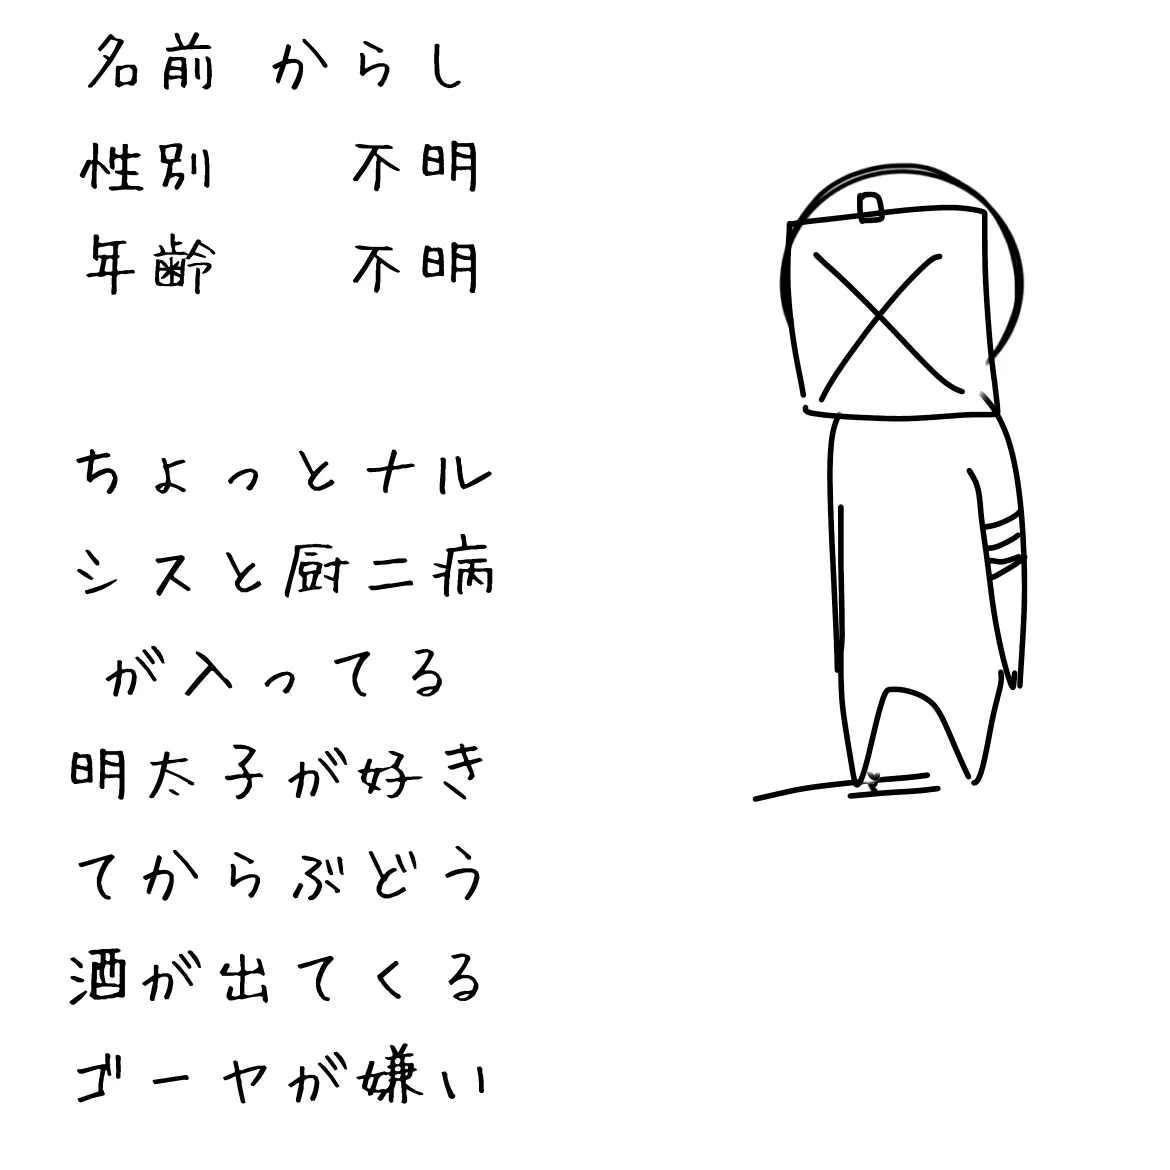 名前 からし
性別 不明
年齢 不明
ちょっとナル
シスと厨二病
が入ってる
明太子が好き
てからぶどう
酒が出てくる
ゴーヤが嫌い